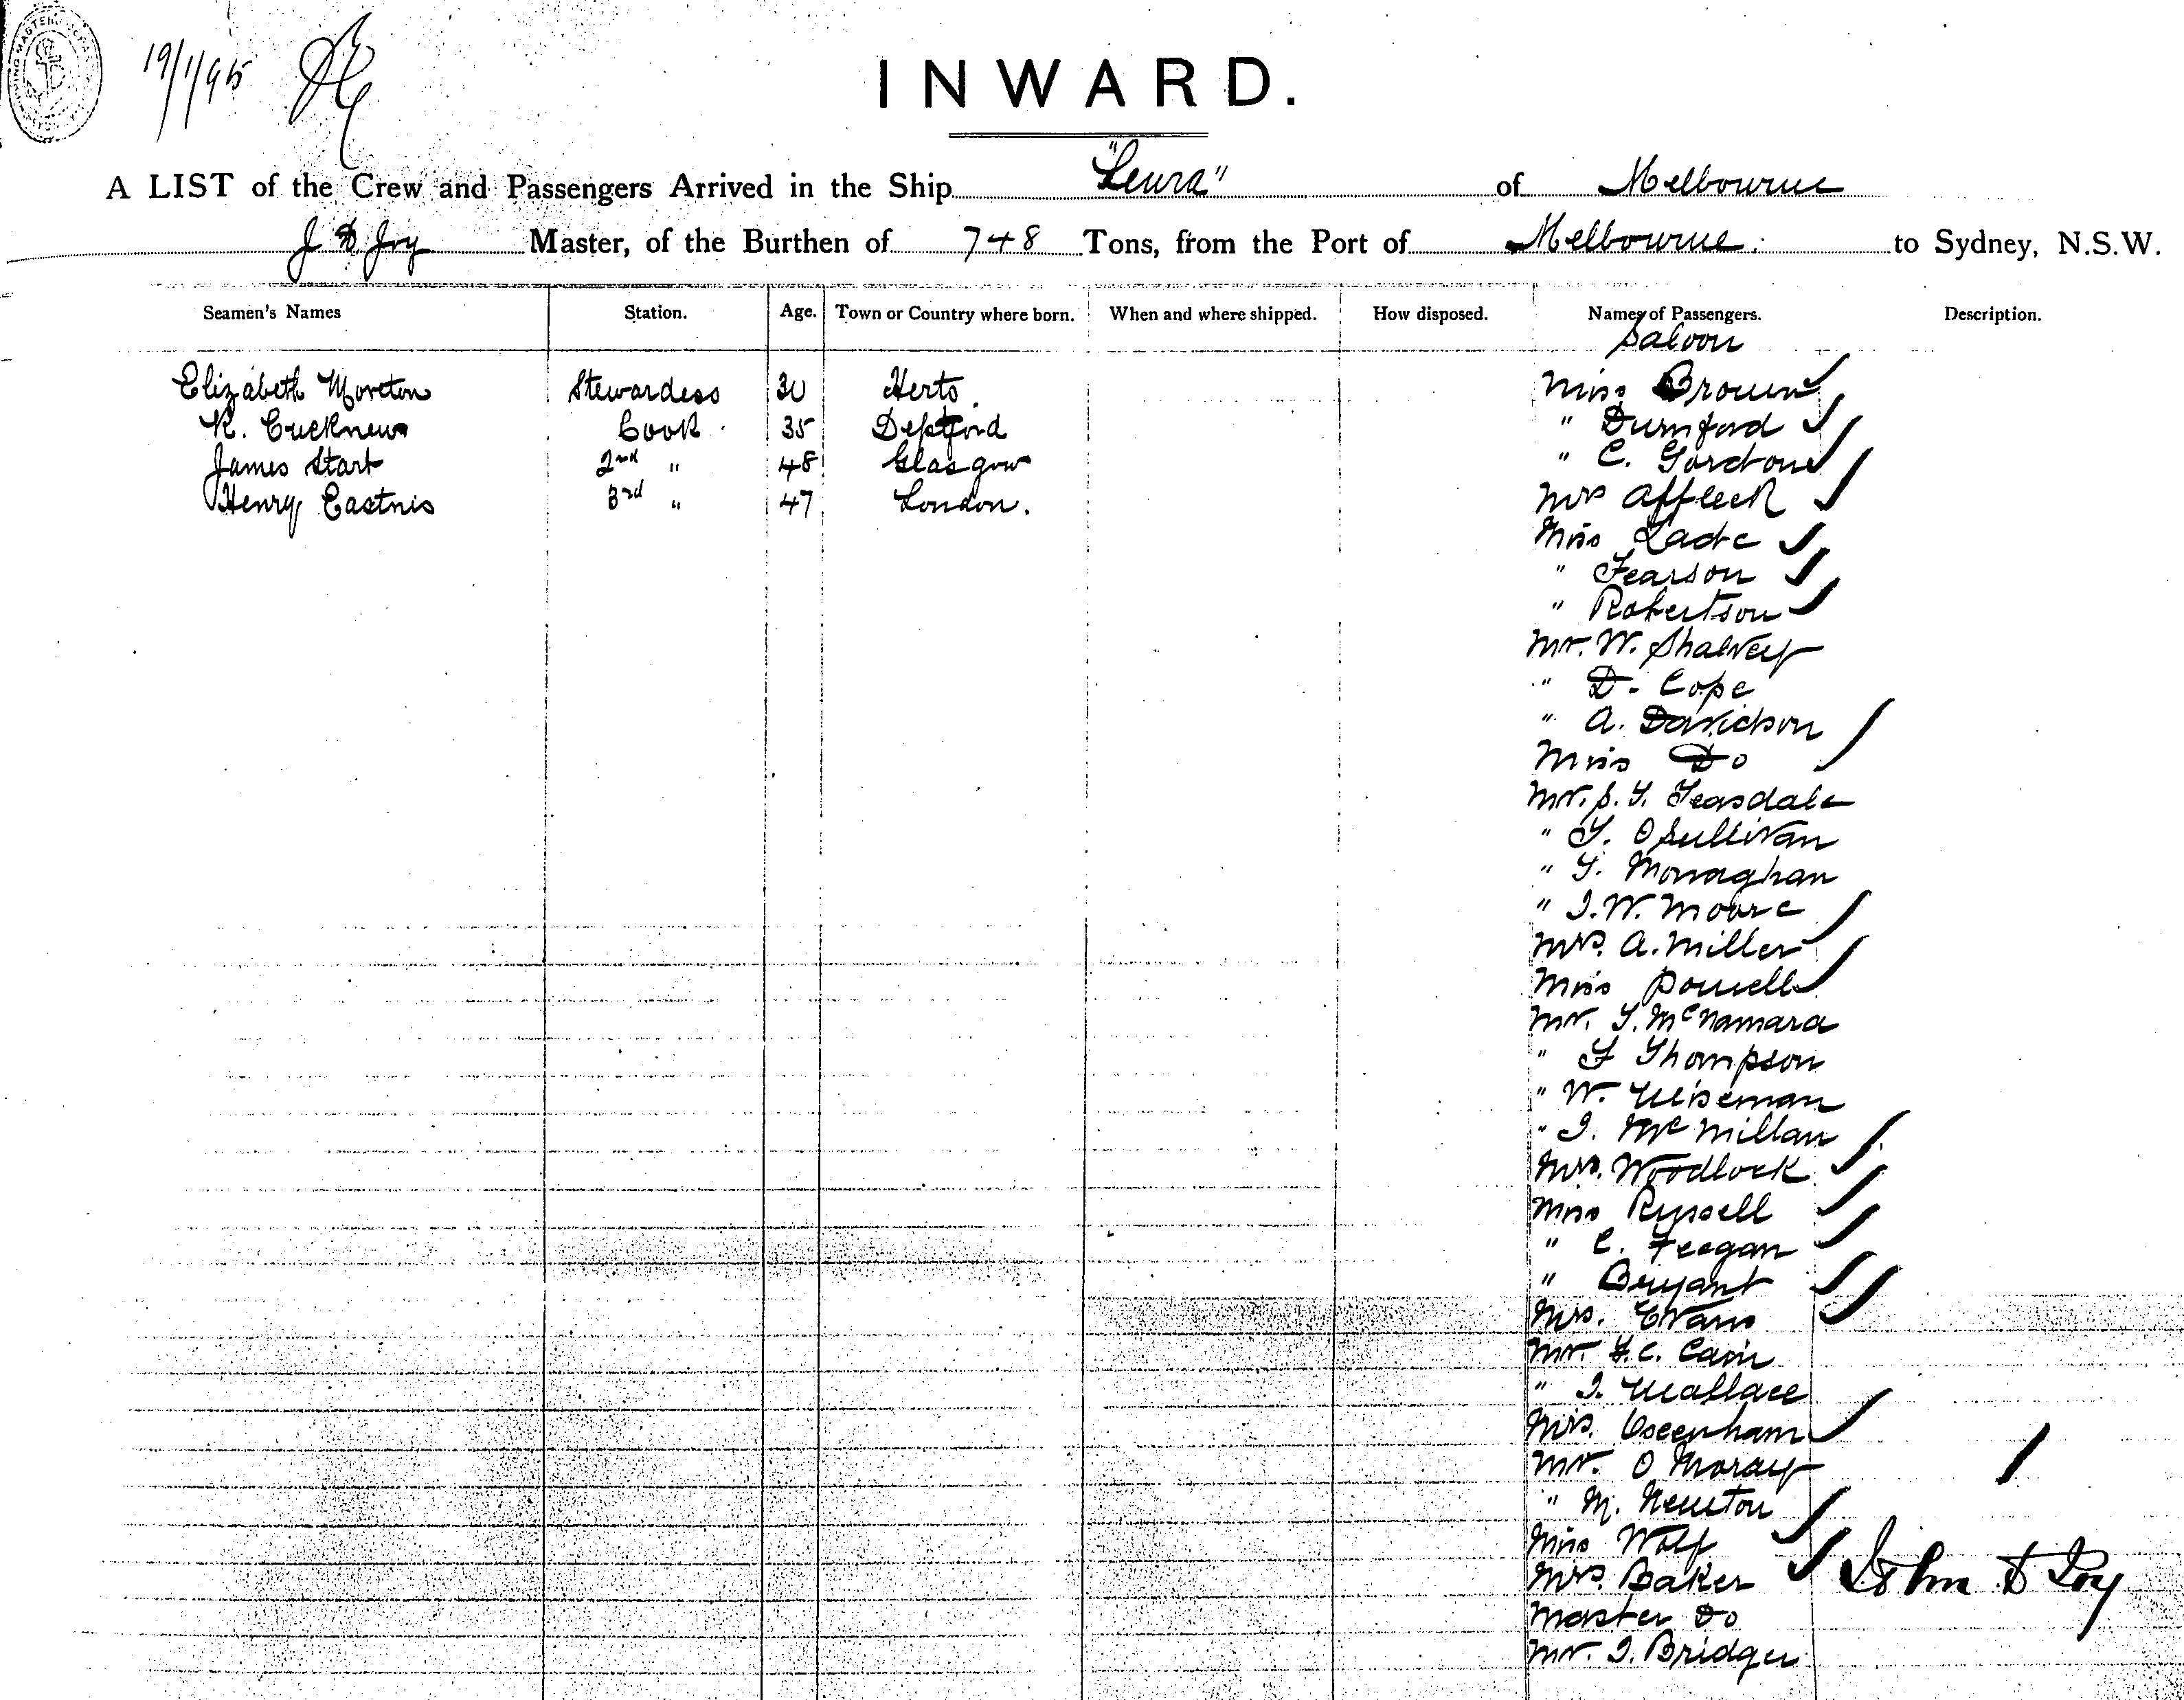 19/1/95
INWARD.
A LIST of the Crew and Passengers Arrived in the Ship "Leura" of Melbourne
J D Joy Master, of the Burthen of 748 Tons, from the Port of Melbourne. to Sydney, N.S.W.
Seamen's Names Station. Age. Town or Country where born. When and where shipped. How disposed. Names of Passengers. Description.
Saloon
Elizabeth Moreton Stewardess 30 Herts. Miss Brown
R. Cook 35 Deptford " Durnford
James Start 2nd " 48 Glasgow " C. Gordon
Henry 3rd " 47 London. Mrs Affleck
Miss Lade
" Fearson
" Robertson
Mr. W. Shalvey
" D. Cope
" A. Davidson
Miss Do
Mr. S. T. Teasdale
" T. O Sullivan
" T. Monaghan
" J. W. Moore
Mrs. A. Miller
Miss Powell
Mr. T. McNamara
" F Thompson
" W. Wiseman
" J. McMillan
Mrs. Woodlock
Miss Russell
" C. Feegan
" Bryant
Mrs. Evans
Mr. F. C. Cain
" J. Wallace
Mrs.
Mr. O Moray
" M. Newton
Miss Wolf
Mrs. Baker John D Joy
Master Do
Mr. J. Bridger